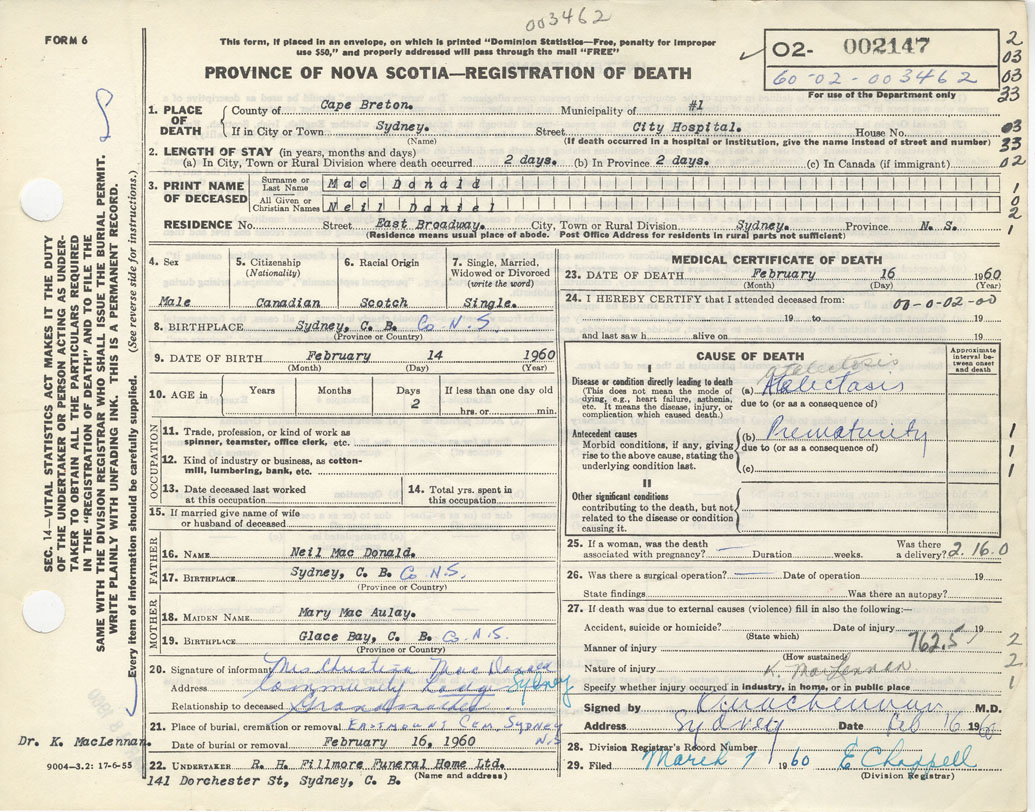 003462
FORM 6
This form, if placed in an envelope, on which is printed "Dominion Statistics—Free, penalty for improper
use $50," and properly addressed will pass through the mail "FREE"
PROVINCE OF NOVA SCOTIA—REGISTRATION OF DEATH
02- 002147
60-02-003462
For use of the Department only
2
03
03
33
1. PLACE OF DEATH
County of Cape Breton. Municipality of #1
If in City or Town Sydney. Street City Hospital. House No.
(Name) (If death occurred in a hospital or institution, give the name instead of street and number)
03
33
02
2. LENGTH OF STAY (in years, months and days)
(a) In City, Town or Rural Division where death occurred 2 days. (b) In Province 2 days. (c) In Canada (if immigrant)
3. PRINT NAME OF DECEASED
Surname or Last Name Mac Donald
All Given or Christian Names Neil Daniel
1
0
2
RESIDENCE No. Street East Broadway. City, Town or Rural Division Sydney. Province N. S.
1
(Residence means usual place of abode. Post Office Address for residents in rural parts not sufficient)
4. Sex
Male
5. Citizenship
(Nationality)
Canadian
6. Racial Origin
Scotch
7. Single, Married,
Widowed or Divorced
(write the word)
Single.
8. BIRTHPLACE Sydney, C. B. Co N.S.
(Province or Country)
9. DATE OF BIRTH February 14 1960
(Month) (Day) (Year)
10. AGE in
Years Months Days If less than one day old
2
hrs. or min.
OCCUPATION
11. Trade, profession, or kind of work as
spinner, teamster, office clerk, etc.
12. Kind of industry or business, as cotton-
mill, lumbering, bank, etc.
13. Date deceased last worked
at this occupation
14. Total yrs. spent in
this occupation
15. If married give name of wife
or husband of deceased
FATHER
16. NAME Neil Mac Donald.
17. BIRTHPLACE Sydney, C. B. Co N.S.
(Province or Country)
MOTHER
18. MAIDEN NAME Mary Mac Aulay.
19. BIRTHPLACE Glace Bay, C. B. Co. N.S.
(Province or Country)
20. Signature of informant Mrs Christina MacDonald
Address Community Lodge Sydney
Relationship to deceased Grandmother.
21. Place of burial, cremation or removal Eastmount Cem, Sydney
N.S
Date of burial or removal February 16, 1960
22. UNDERTAKER R. H. Fillmore Funeral Home Ltd.
(Name and address)
141 Dorchester St, Sydney, C. B.
MEDICAL CERTIFICATE OF DEATH
23. DATE OF DEATH February 16 1960
(Month) (Day) (Year)
24. I HEREBY CERTIFY that I attended deceased from:
00-0-02-00
19 to 19
and last saw h alive on 19
CAUSE OF DEATH
Approximate
interval be-
tween onset
and death
I
Disease or condition directly leading to death
(This does not mean the mode of
dying, e.g., heart failure, asthenia,
etc. It means the disease, injury, or
complication which caused death.)
Atelectasis
(a) Atelectasis
due to (or as a consequence of)
Antecedent causes
Morbid conditions, if any, giving
rise to the above cause, stating the
underlying condition last.
(b) Prematurity
due to (or as a consequence of)
(c)
1
1
1
II
Other significant conditions
contributing to the death, but not
related to the disease or condition
causing it.
25. If a woman, was the death
associated with pregnancy? — Duration weeks. Was there
a delivery? 2.16.0
26. Was there a surgical operation? — Date of operation 19
State findings Was there an autopsy?
27. If death was due to external causes (violence) fill in also the following:—
Accident, suicide or homicide? Date of injury 19
(State which)
762.5
Manner of injury
(How sustained)
2
Nature of injury K. MacLennan
2
Specify whether injury occurred in industry, in home, or in public place
1
Signed by K MacLennan M.D.
Address Sydney Date Feb 16 1960
28. Division Registrar's Record Number
29. Filed March 7 1960 E Chappell
(Division Registrar)
SEC. 14—VITAL STATISTICS ACT MAKES IT THE DUTY
OF THE UNDERTAKER OR PERSON ACTING AS UNDER-
TAKER TO OBTAIN ALL THE PARTICULARS REQUIRED
IN THE "REGISTRATION OF DEATH" AND TO FILE THE
SAME WITH THE DIVISION REGISTRAR WHO SHALL ISSUE THE BURIAL PERMIT.
WRITE PLAINLY WITH UNFADING INK. THIS IS A PERMANENT RECORD.
Every item of information should be carefully supplied. (See reverse side for instructions.)
Dr. K. MacLennan.
9004-3.2: 17-6-55